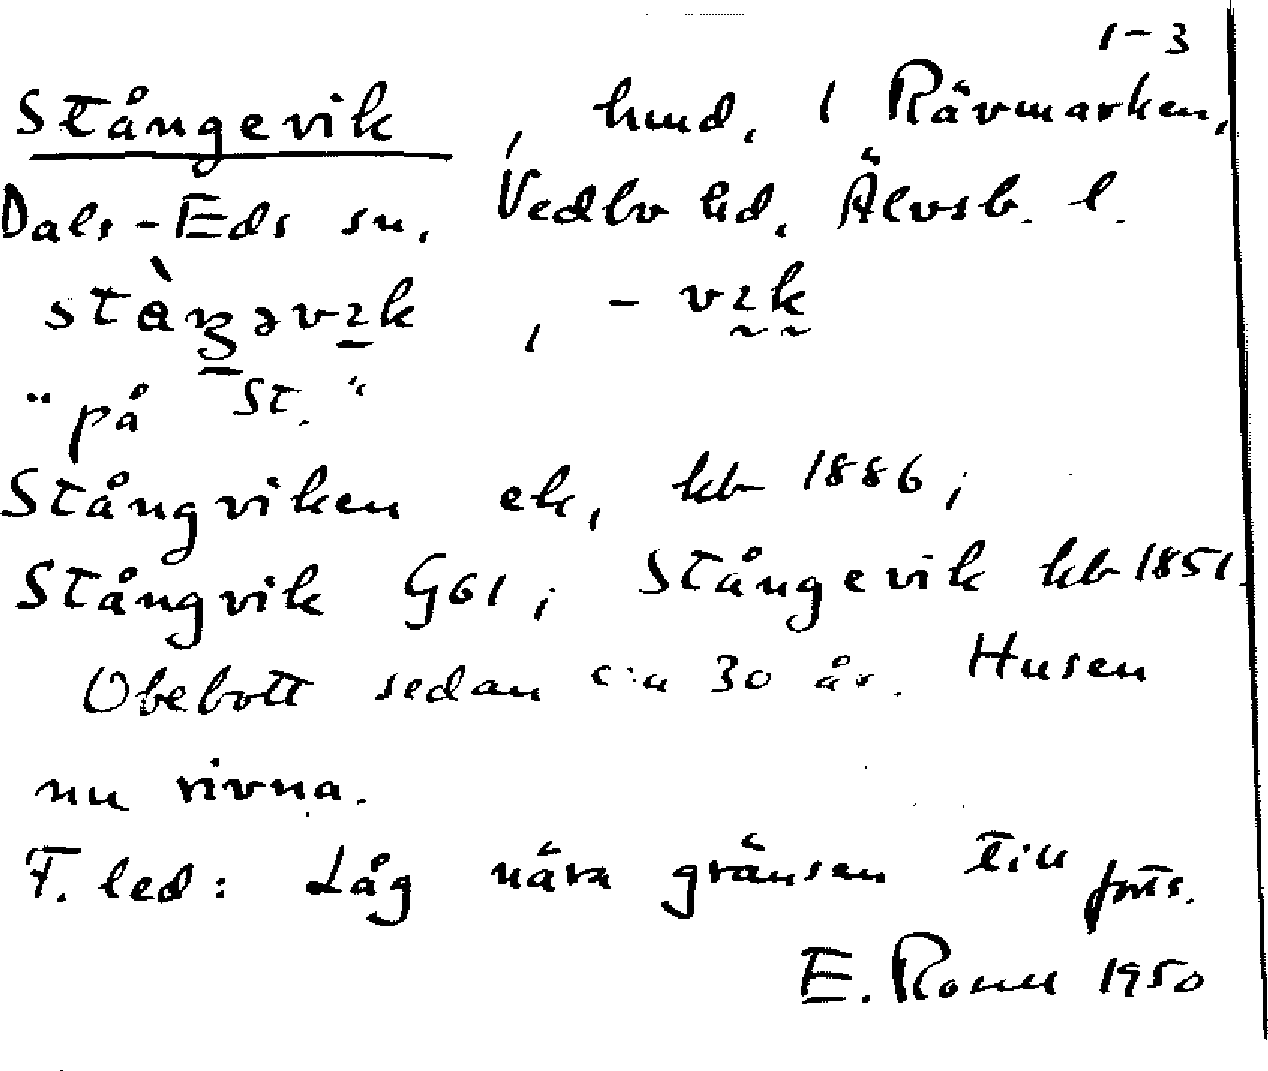 1-3
Stångevik, hmd. i Rävmarken,
Dals-Eds sn, Vedbo hd, Älvsb. l.
"på St."
Stångviken ek, kb 1886;
Stångvik G61; Stångevik kb 1851.
Obebott sedan c:a 30 år. Husen
nu rivna.
F. led: Låg nära gränsen till forts.
E. Ronu 1950